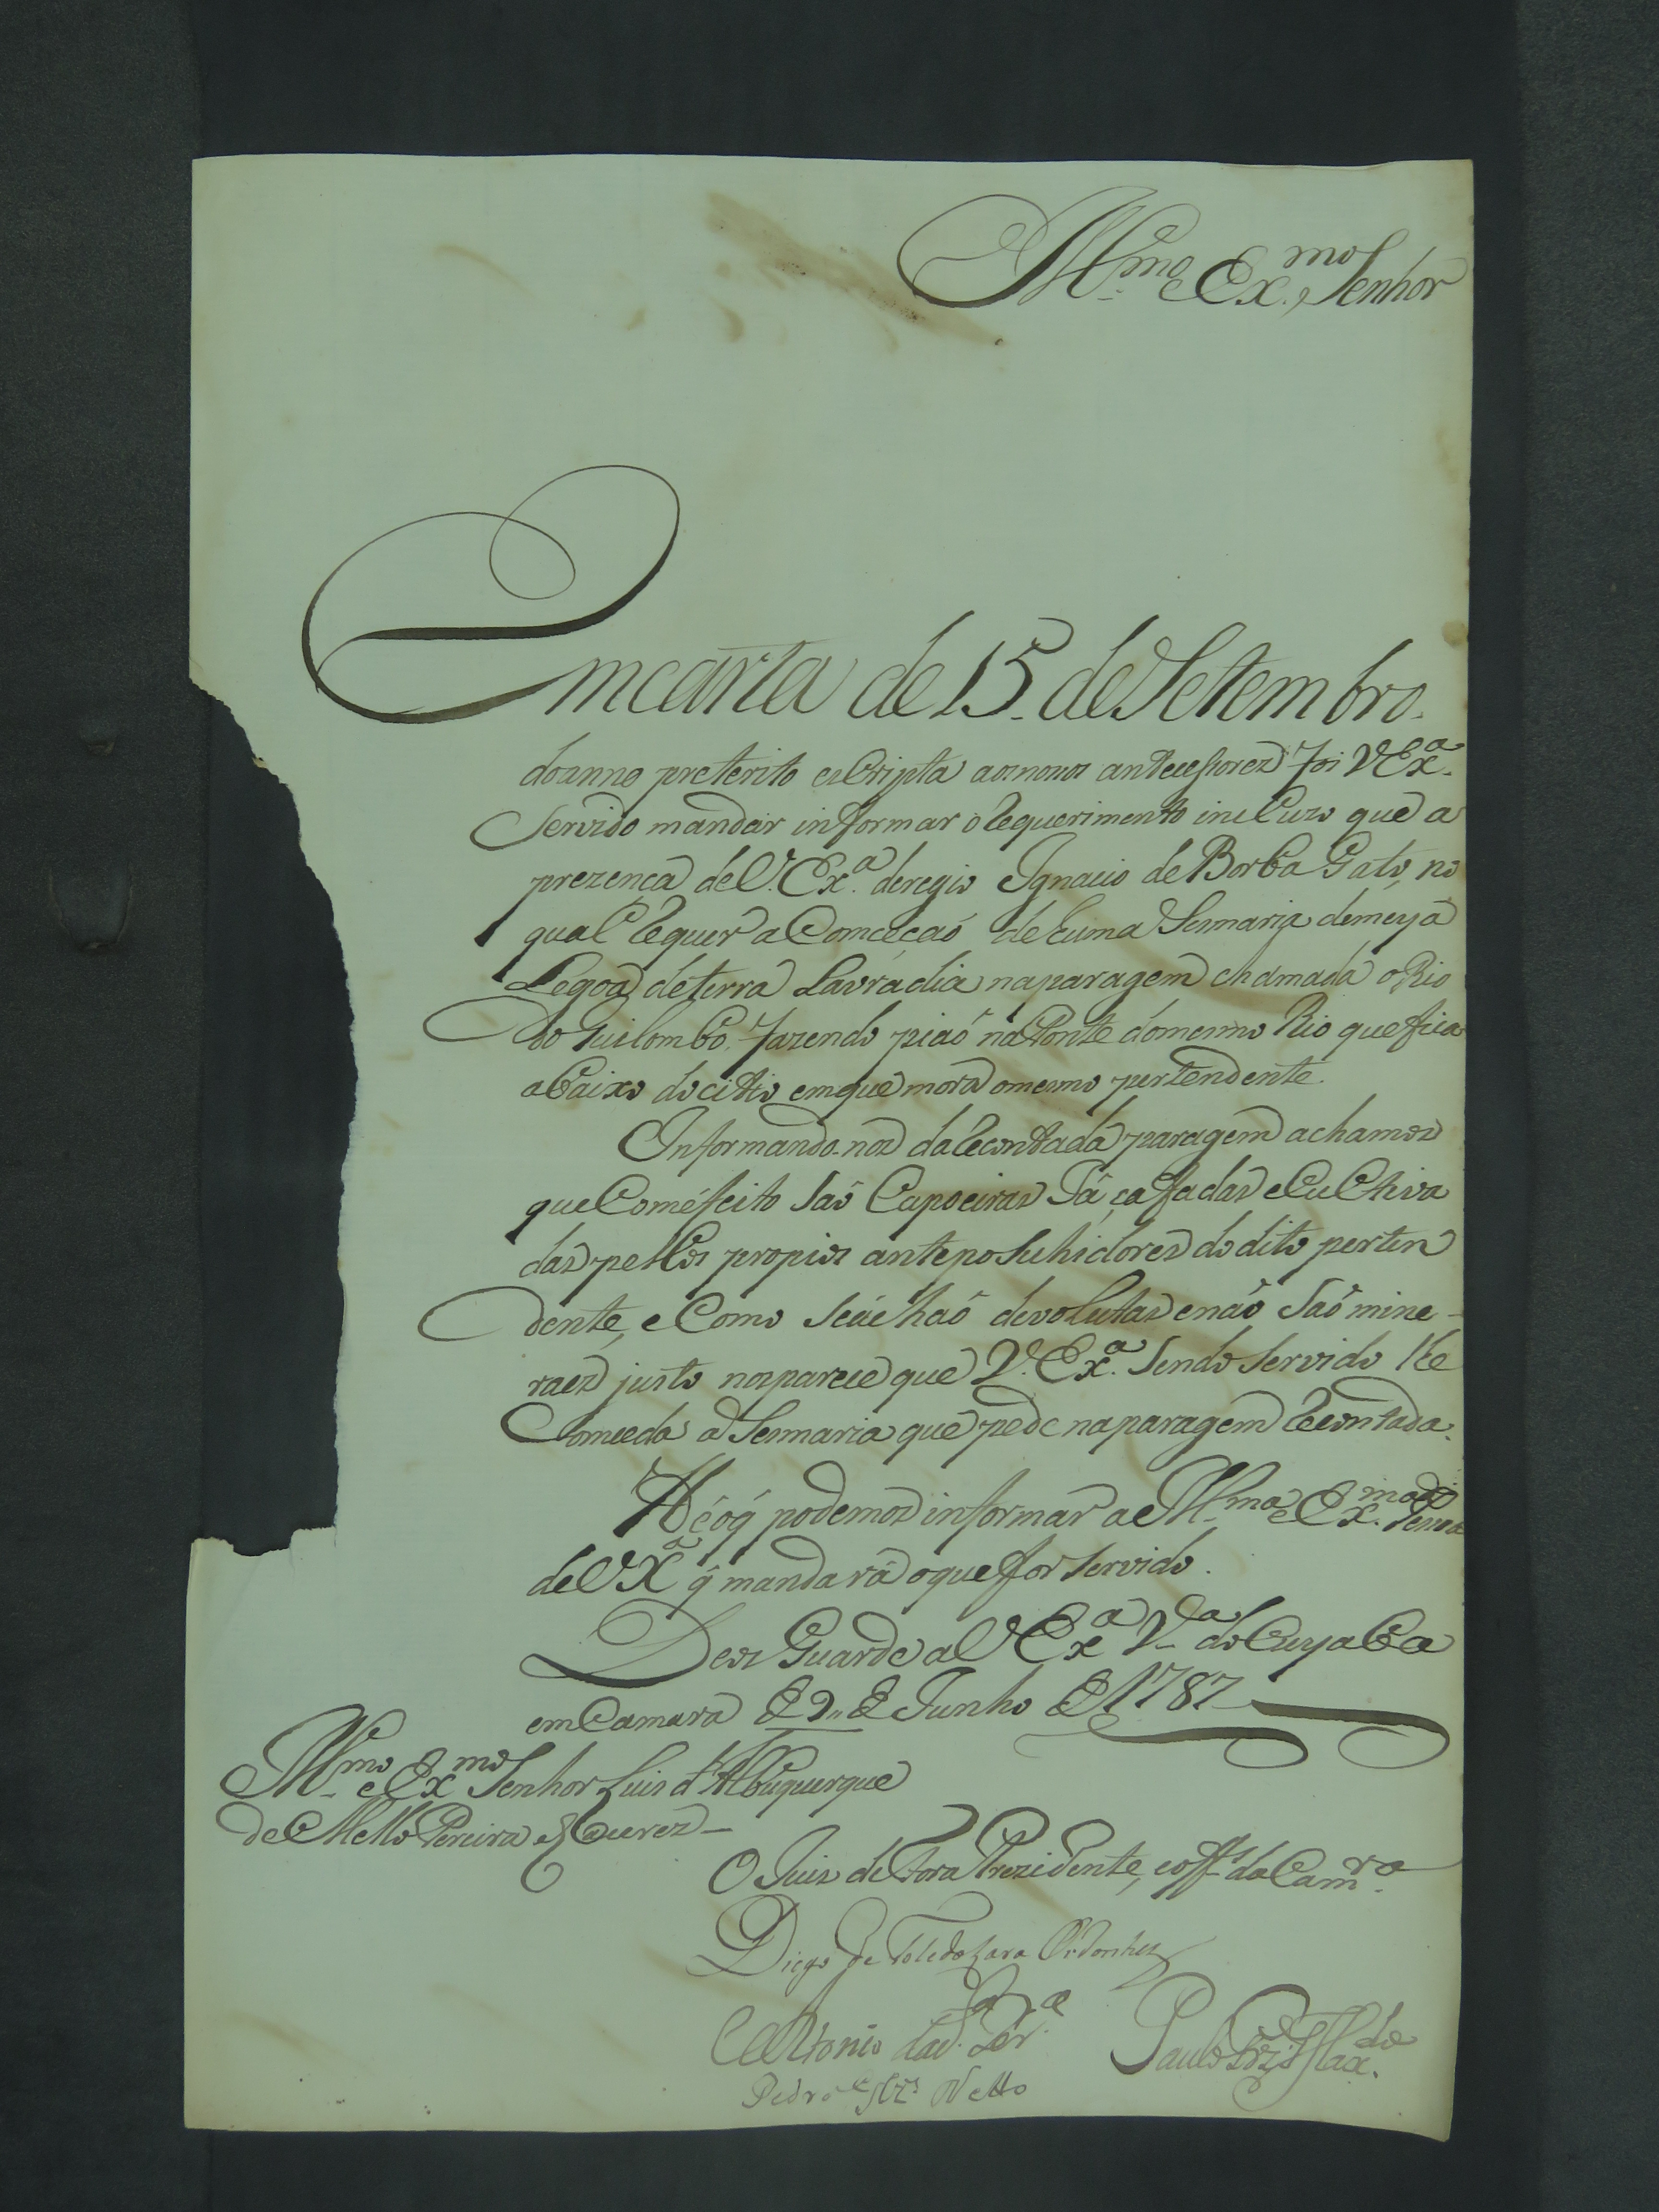 Ill.mo e Ex.mo Senhor
Em carta de 15 de Setembro
do anno preterito escripta aos nosos antecessores foi V Ex.a
servido mandar informar o requerimento incluzo que a
prezença de V. Ex.a deregio Ignacio de Borba Gato, no
qual requer a Comceçaõ de huma Sesmaria de meya
Legoa de terra Lavradia na paragem chamada o Rio
do Quilombo, fazendo piaõ na Ponte do mesmo Rio que fica
abaixo do citio em que mora o mesmo pertendente.
Informando-nos da recontada paragem achamos
que Com éfeito saõ Capoeiras Já safadas e Cultiva
das pellos propios anteposuhidores do dito perten
dente, e Como se áchaõ devolutas e naõ saõ mine-
raes justo nos parece que V. Ex.a sendo servido lhe
Comceda a Sesmaria que pede na paragem recontada.
Hé o q̃ podemos informar a Ill.ma e Ex.ma Pessoa
de V Ex.a q̃ mandará o que for servido.
Deos Guarde a V Ex.a V.a do Cuyaba
em Camara de 2 de Junho de 1787
Ill.mo e Ex.mo Senhor Luis d'Albuquerque
de Mello Pereira e Caceres
O Juis de Fora Prezidente, e off.s da Cam.ra
Diogo de Toledo Lara Ordonhez
Antonio
Paulo
Pedro Netto